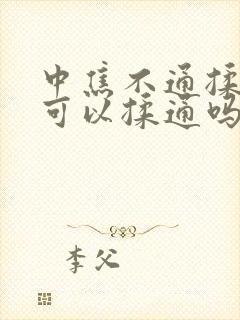 中焦不通揉
可以揉通吗
李父